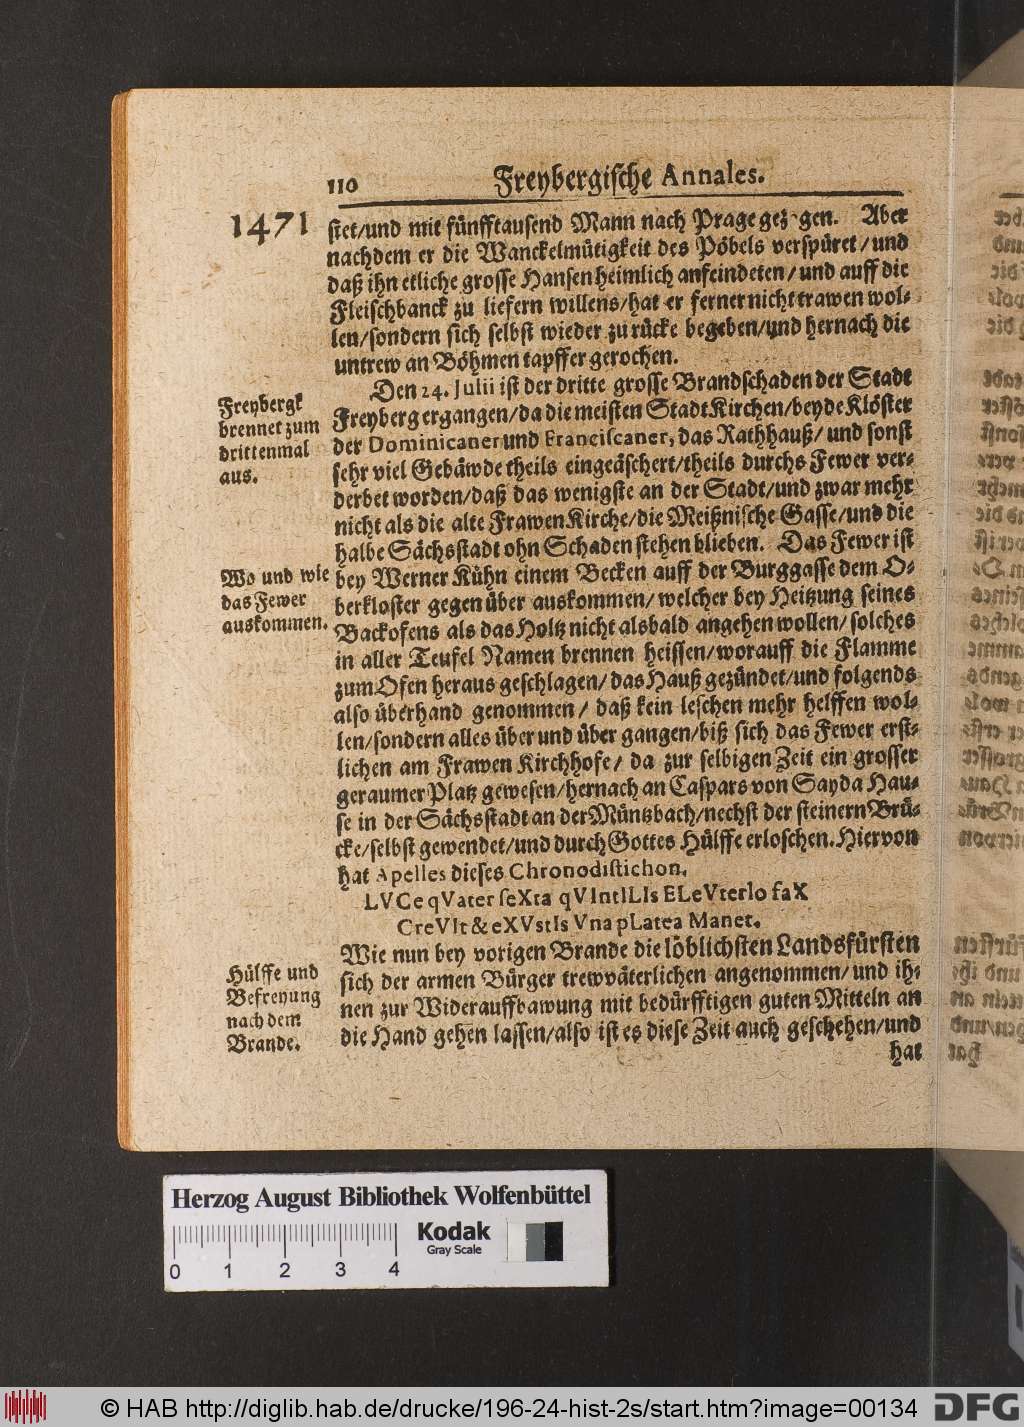 110
Freybergische Annales.
1471
stet/und mit fünfftausend Mann nach Prage gezogen. Aber
nachdem er die Wanckelmütigkeit des Pöbels verspüret/und
daß ihn etliche grosse Hansen heimlich anfeindeten/und auff die
Fleischbanck zu liefern willens/hat er ferner nicht trawen wol-
len/sondern sich selbst wieder zu rücke begeben/und hernach die
untrew an Böhmen tapffer gerochen.
Den 24. Julii ist der dritte grosse Brandschaden der Stadt
Freyberg ergangen/da die meisten StadtKirchen/beyde Klöster
der Dominicaner und Franciscaner, das Rathhauß/ und sonst
sehr viel Gebäwde theils eingeäschert/theils durchs Fewer ver-
derbet worden/daß das wenigste an der Stadt/und zwar mehr
nicht als die alte FrawenKirche/die Meißnische Gasse/und die
halbe Sächsstadt ohn Schaden stehen blieben. Das Fewer ist
bey Werner Kühn einem Becken auff der Burggasse dem O-
berkloster gegen über auskommen/welcher bey Heitzung seines
Backofens als das Holtz nicht alsbald angehen wollen/solches
in aller Teufel Namen brennen heissen/worauff die Flamme
zum Ofen heraus geschlagen/das Hauß gezündet/und folgends
also überhand genommen/ daß kein leschen mehr helffen wol-
len/sondern alles über und über gangen/biß sich das Fewer erst-
lichen am Frawen Kirchhofe/ da zur selbigen Zeit ein grosser
geraumer Platz gewesen/hernach an Caspars von Sayda Hau-
se in der Sächsstadt an der Müntzbach/nechst der steinern Brü-
cke/selbst gewendet/und durch Gottes Hülffe erloschen. Hiervon
hat Apelles dieses Chronodistichon.
LVCe qVater seXta qVIntILIs ELeVterIo faX
CreVIt & eXVstIs Vna pLatea Manet.
Wie nun bey vorigen Brande die löblichsten Landsfürsten
sich der armen Bürger trewväterlichen angenommen/und ih-
nen zur Widerauffbawung mit bedürfftigen guten Mitteln an
die Hand gehen lassen/also ist es diese Zeit auch geschehen/und
hat
Freybergk
brennet zum
drittenmal
aus.
Wo und wie
das Fewer
auskommen.
Hülffe und
Befreyung
nach dem
Brande.
Herzog August Bibliothek Wolfenbüttel
Kodak
Gray Scale
0 1 2 3 4
© HAB http://diglib.hab.de/drucke/196-24-hist-2s/start.htm?image=00134
DFG